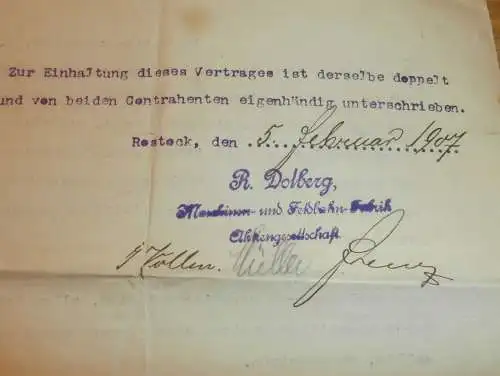 Zur Einhaltung dieses Vertrages ist derselbe doppelt
und von beiden Contrahenten eigenhändig unterschrieben.
Rostock, den 5. Februar 1907
R. Dolberg,
Maschinen- und Feldbahn-Fabrik
Aktiengesellschaft
Müller